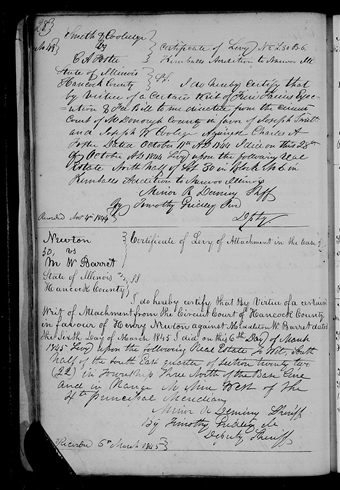 Smith & Coolidge
vs
C A Foster
Certificate of Levy N ½ L 30 B 6
Kimballs Addition to Nauvoo Ill
State of Illinois
Hancock County } SS. I do hereby certify that
by Virtue of a certain Writ of Fieri Facias Exe-
cution & Fee bill to me directed from the circuit
Court of McDonough County in favor of Joseph Smith
and Joseph W Coolidge Against Charles A
Foster Dated October 11th AD 1844 I did on this 25th
Day October AD 1844 Levy upon the following Real
Estate North half of Lot 30 in Block No 6 in
Kimballs Addition to Nauvoo Illinois
Minor R Deming Shff
By Timothy Gridley
Dpty
Recorded Nov 4th 1844
Newton
vs
M W Barrett
Certificate of Levy of Attachment in the case
State of Illinois
Hancock County } SS
I do hereby certify that By Virtue of a certain
Writ of Attachment from the Circuit Court of Hancock County
in favour of Henry Newton against W Barrett dated
the Sixth Day of March 1845 I did on this 6th Day of March
1845 Levy upon the following Real Estate to Wit, South
half of the South East quarter of Section twenty two
(22) in Township Three North of the Base Line
and in Range Nine West of the
4th principal Meridian
Minor R Deming Sheriff
By Timothy Gridley
Deputy Sheriff
Recorded 6th March 1845